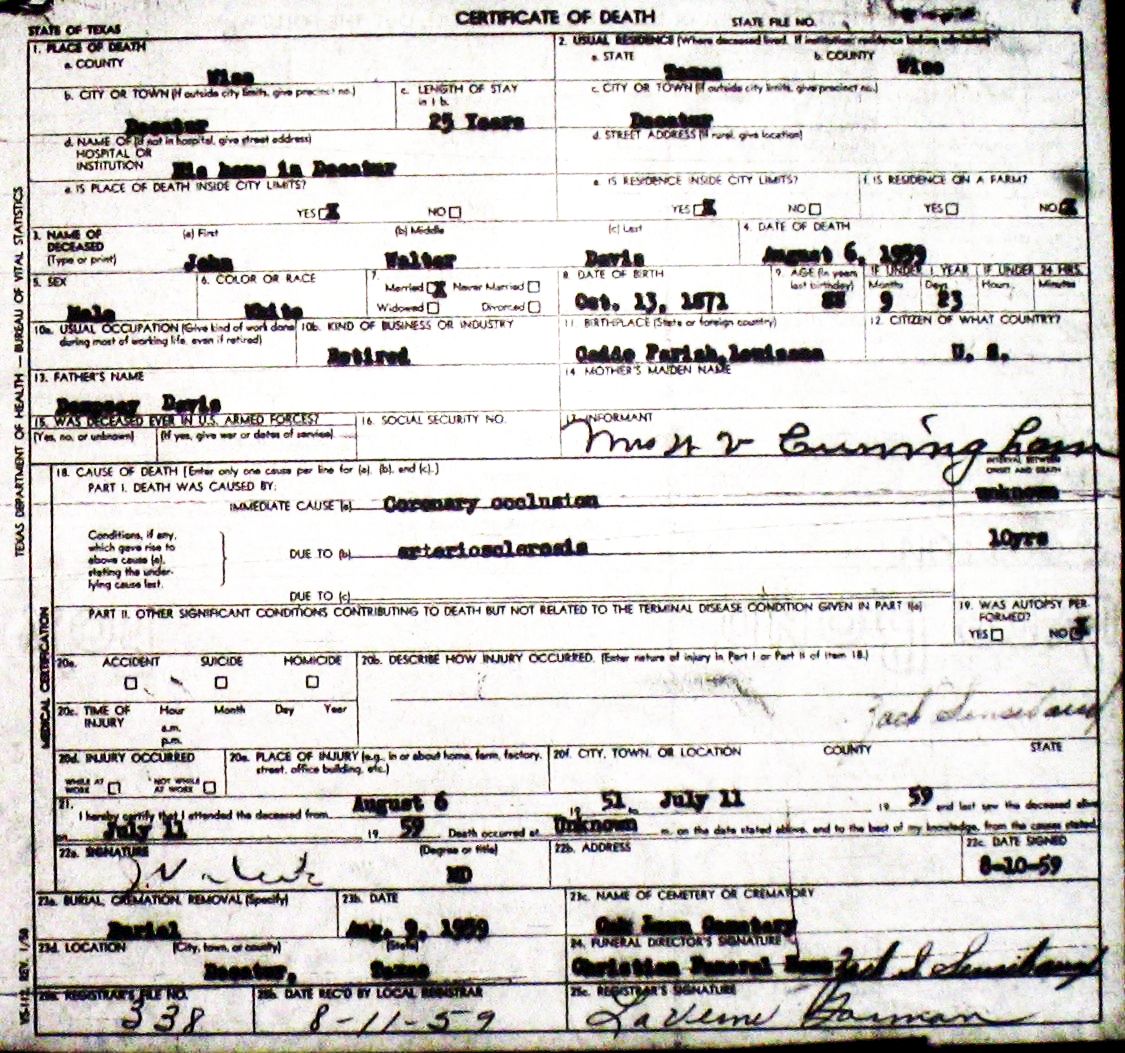 CERTIFICATE OF DEATH
STATE OF TEXAS
STATE FILE NO.
1. PLACE OF DEATH
a. COUNTY
Wise
2. USUAL RESIDENCE (Where deceased lived. If institution: residence before admission)
a. STATE
Texas
b. COUNTY
Wise
b. CITY OR TOWN (If outside city limits, give precinct no.)
Decatur
c. LENGTH OF STAY
in 1 b.
25 Years
c. CITY OR TOWN (If outside city limits, give precinct no.)
Decatur
d. NAME OF (If not in hospital, give street address)
HOSPITAL OR
INSTITUTION His home in Decatur
d. STREET ADDRESS (If rural, give location)
e. IS PLACE OF DEATH INSIDE CITY LIMITS?
YES X NO
e. IS RESIDENCE INSIDE CITY LIMITS?
YES X NO
f. IS RESIDENCE ON A FARM?
YES NO X
3. NAME OF
DECEASED
(Type or print)
(a) First
John
(b) Middle
Walter
(c) Last
Davis
4. DATE OF DEATH
August 6, 1959
5. SEX
Male
6. COLOR OR RACE
White
7.
Married X Never Married
Widowed Divorced
8 DATE OF BIRTH
Oct. 13, 1871
9. AGE (In years
last birthday)
IF UNDER 1 YEAR
Months
9
Days
23
IF UNDER 24 HRS.
Hours
Minutes
10a. USUAL OCCUPATION (Give kind of work done
during most of working life, even if retired)
10b. KIND OF BUSINESS OR INDUSTRY
Retired
11 BIRTHPLACE (State or foreign country)
Caddo Parish, Louisana
12. CITIZEN OF WHAT COUNTRY?
U. S.
13. FATHER'S NAME
Dempsey Davis
14 MOTHER'S MAIDEN NAME
15. WAS DECEASED EVER IN U.S. ARMED FORCES?
(Yes, no, or unknown) (If yes, give war or dates of service)
16. SOCIAL SECURITY NO.
17. INFORMANT
Mrs H V Cunningham
18. CAUSE OF DEATH [Enter only one cause per line for (a), (b), and (c).]
INTERVAL BETWEEN
ONSET AND DEATH
PART I. DEATH WAS CAUSED BY:
IMMEDIATE CAUSE (a) Coronary occlusion
unknown
Conditions, if any,
which gave rise to
above cause (a),
stating the under-
lying cause last.
DUE TO (b) arteriosclerosis
10yrs
DUE TO (c)
PART II. OTHER SIGNIFICANT CONDITIONS CONTRIBUTING TO DEATH BUT NOT RELATED TO THE TERMINAL DISEASE CONDITION GIVEN IN PART I(a)
19. WAS AUTOPSY PER-
FORMED?
YES NO X
20a. ACCIDENT SUICIDE HOMICIDE
20b. DESCRIBE HOW INJURY OCCURRED. (Enter nature of injury in Part I or Part II of item 18.)
20c. TIME OF
INJURY
Hour Month Day Year
a.m.
p.m.
Jack
20d. INJURY OCCURRED
WHILE AT
WORK
NOT WHILE
AT WORK
20e. PLACE OF INJURY (e.g., in or about home, farm, factory,
street, office building, etc.)
20f. CITY, TOWN, OR LOCATION COUNTY STATE
21.
I hereby certify that I attended the deceased from August 6 19 51 July 11 19 59 and last saw the deceased alive
on July 11 19 59 Death occurred at Unknown m. on the date stated above, and to the best of my knowledge, from the causes stated.
22a. SIGNATURE
(Degree or title)
MD
22b. ADDRESS
22c. DATE SIGNED
8-10-59
23a. BURIAL, CREMATION, REMOVAL (Specify)
Burial
23b. DATE
Aug. 9, 1959
23c. NAME OF CEMETERY OR CREMATORY
Oak Lawn Cemetary
23d. LOCATION (City, town, or county) (State)
Decatur, Texas
24. FUNERAL DIRECTOR'S SIGNATURE
Christian Funeral Home
25a. REGISTRAR'S FILE NO.
338
25b. DATE REC'D BY LOCAL REGISTRAR
8-11-59
25c. REGISTRAR'S SIGNATURE
LaVerne Gorman
TEXAS DEPARTMENT OF HEALTH — BUREAU OF VITAL STATISTICS
MEDICAL CERTIFICATION
VS-112 REV. 1/58